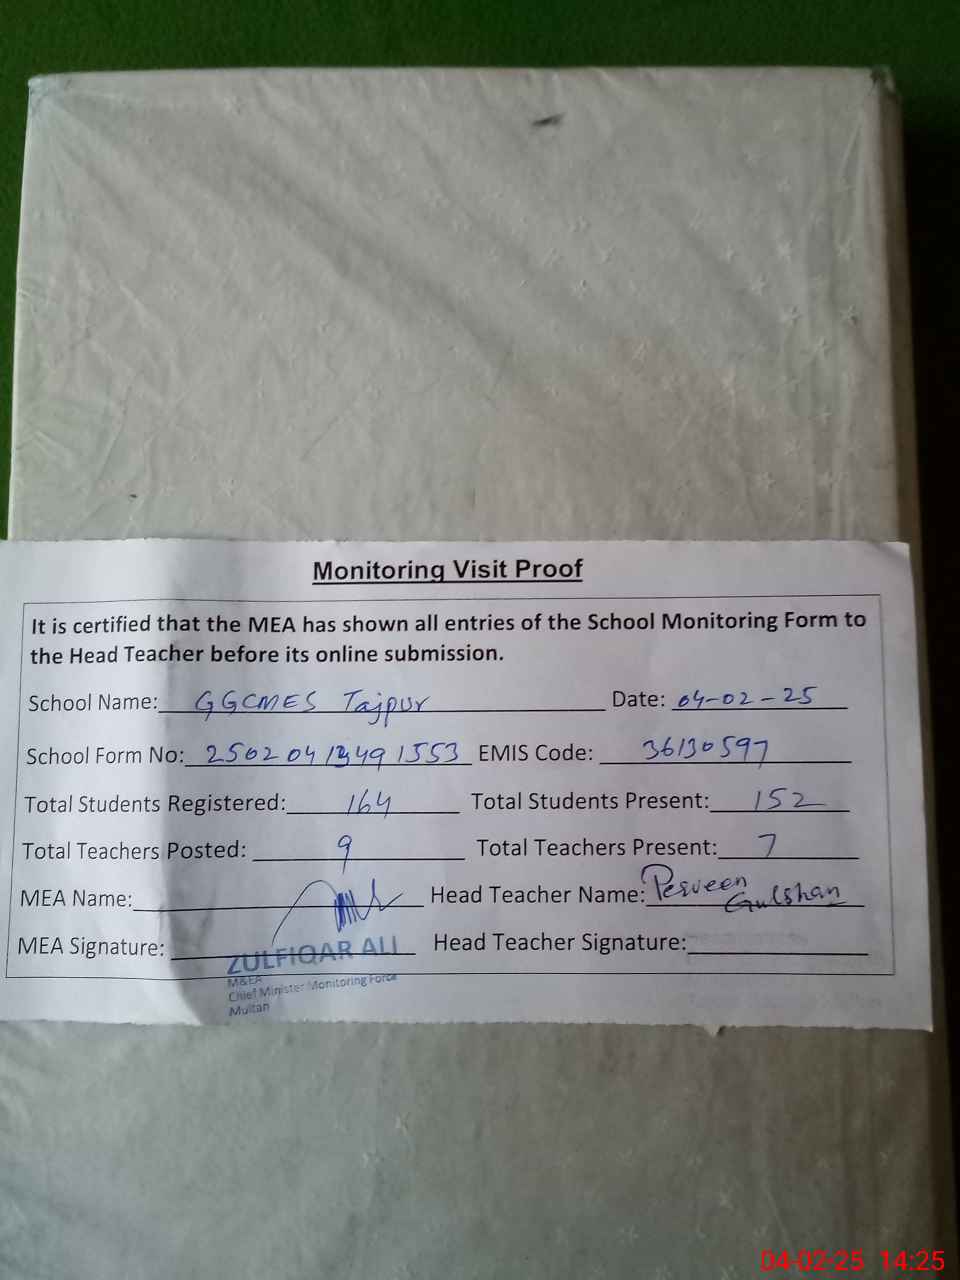 Monitoring Visit Proof
It is certified that the MEA has shown all entries of the School Monitoring Form to
the Head Teacher before its online submission.
School Name: GGCMES Tajpur Date: 04-02-25
School Form No: EMIS Code: 36130597
Total Students Registered: 164 Total Students Present: 152
Total Teachers Posted: 9 Total Teachers Present: 7
MEA Name: Head Teacher Name: Perveen Gulshan
MEA Signature: Head Teacher Signature:
ZULFIQAR ALI
M&EA
Chief Minister Monitoring Force
Multan
04-02-25 14:25